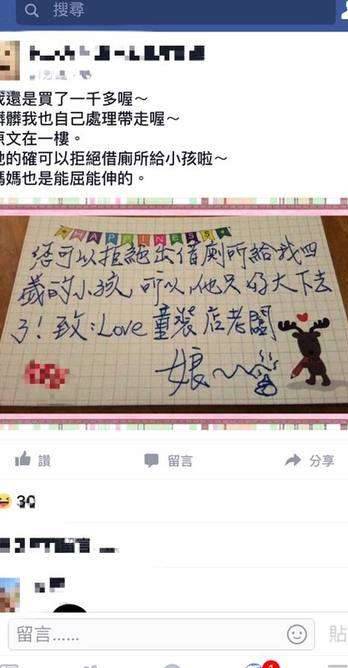 搜尋
我還是買了一千多喔～
髒髒我也自己處理帶走喔～
原文在一樓。
他的確可以拒絕借廁所給小孩啦～
媽媽也是能屈能伸的。
HAPPINESS
您可以拒絕出借廁所給我四
歲的小孩 所以他只好大下去
了！致：Love 童裝店老闆
娘～～
讚
留言
分享
30
留言......
貼